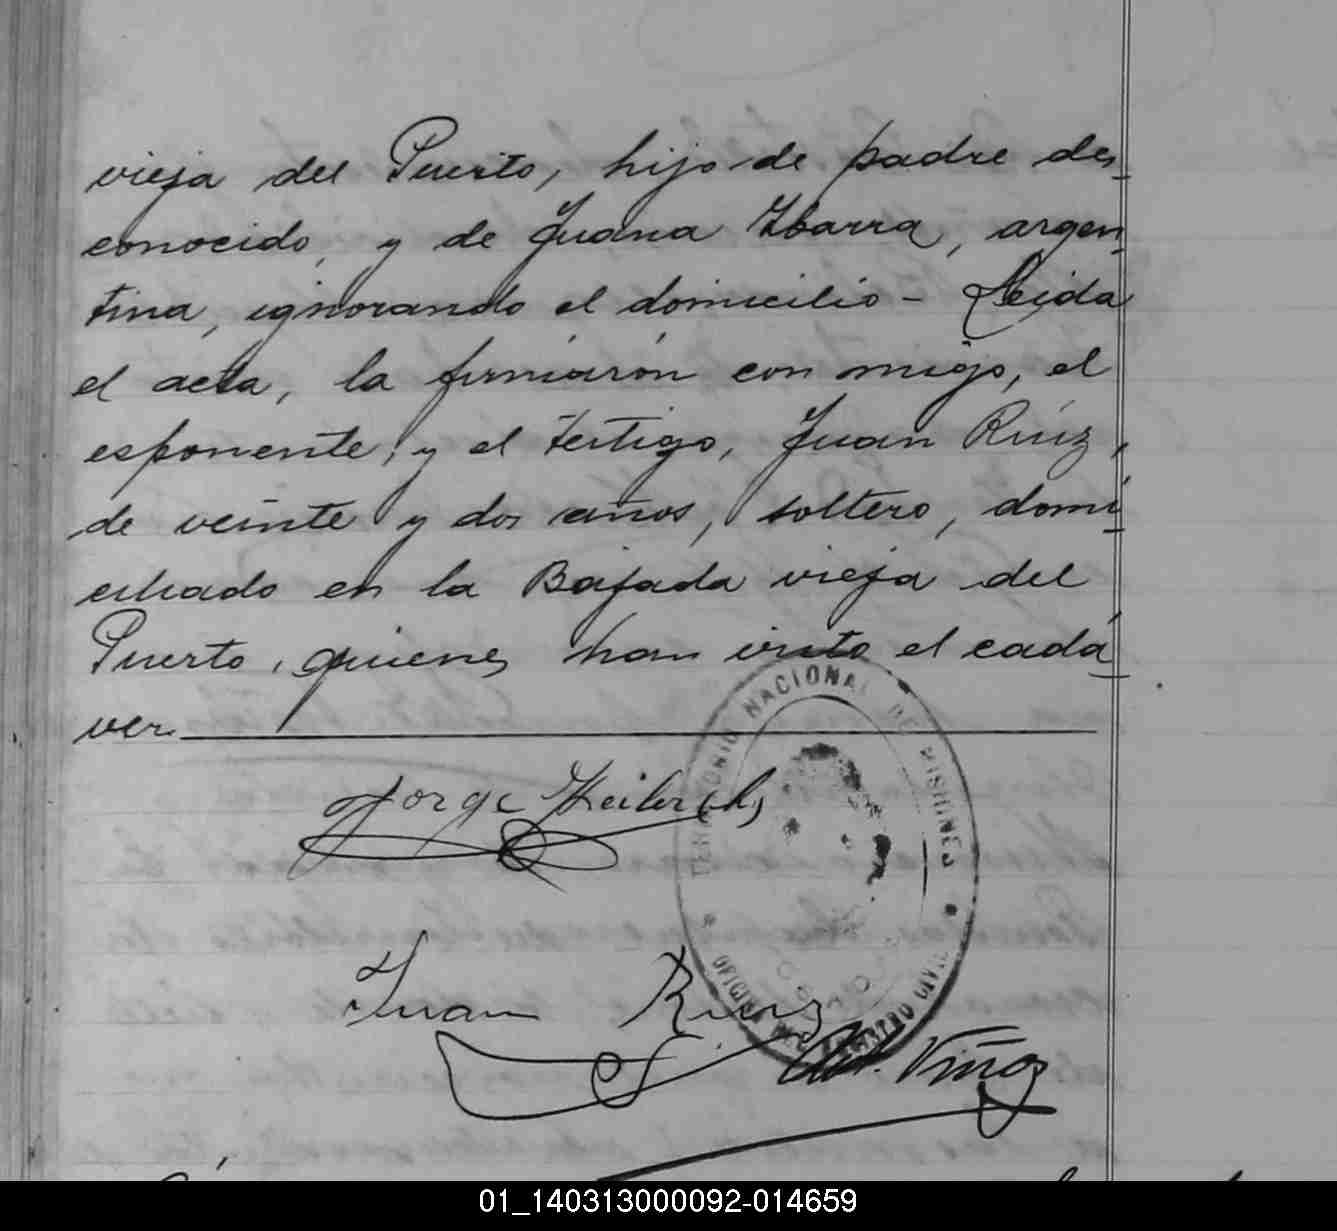 vieja del Puerto, hijo de padre des-
conocido, y de Juana Ybarra, argen-
tina, ignorando el domicilio - Leida
el acta, la firmarón con migo, el
esponente, y el testigo, Juan Ruiz,
de veinte y dos años, soltero, domi-
ciliado en la Bajada vieja del
Puerto, quienes han visto el cadá-
ver
TERRITORIO NACIONAL DE MISIONES
Jorge
OFICINA DEL REGISTRO CIVIL
Juan Ruiz
Viñas
01_140313000092-014659